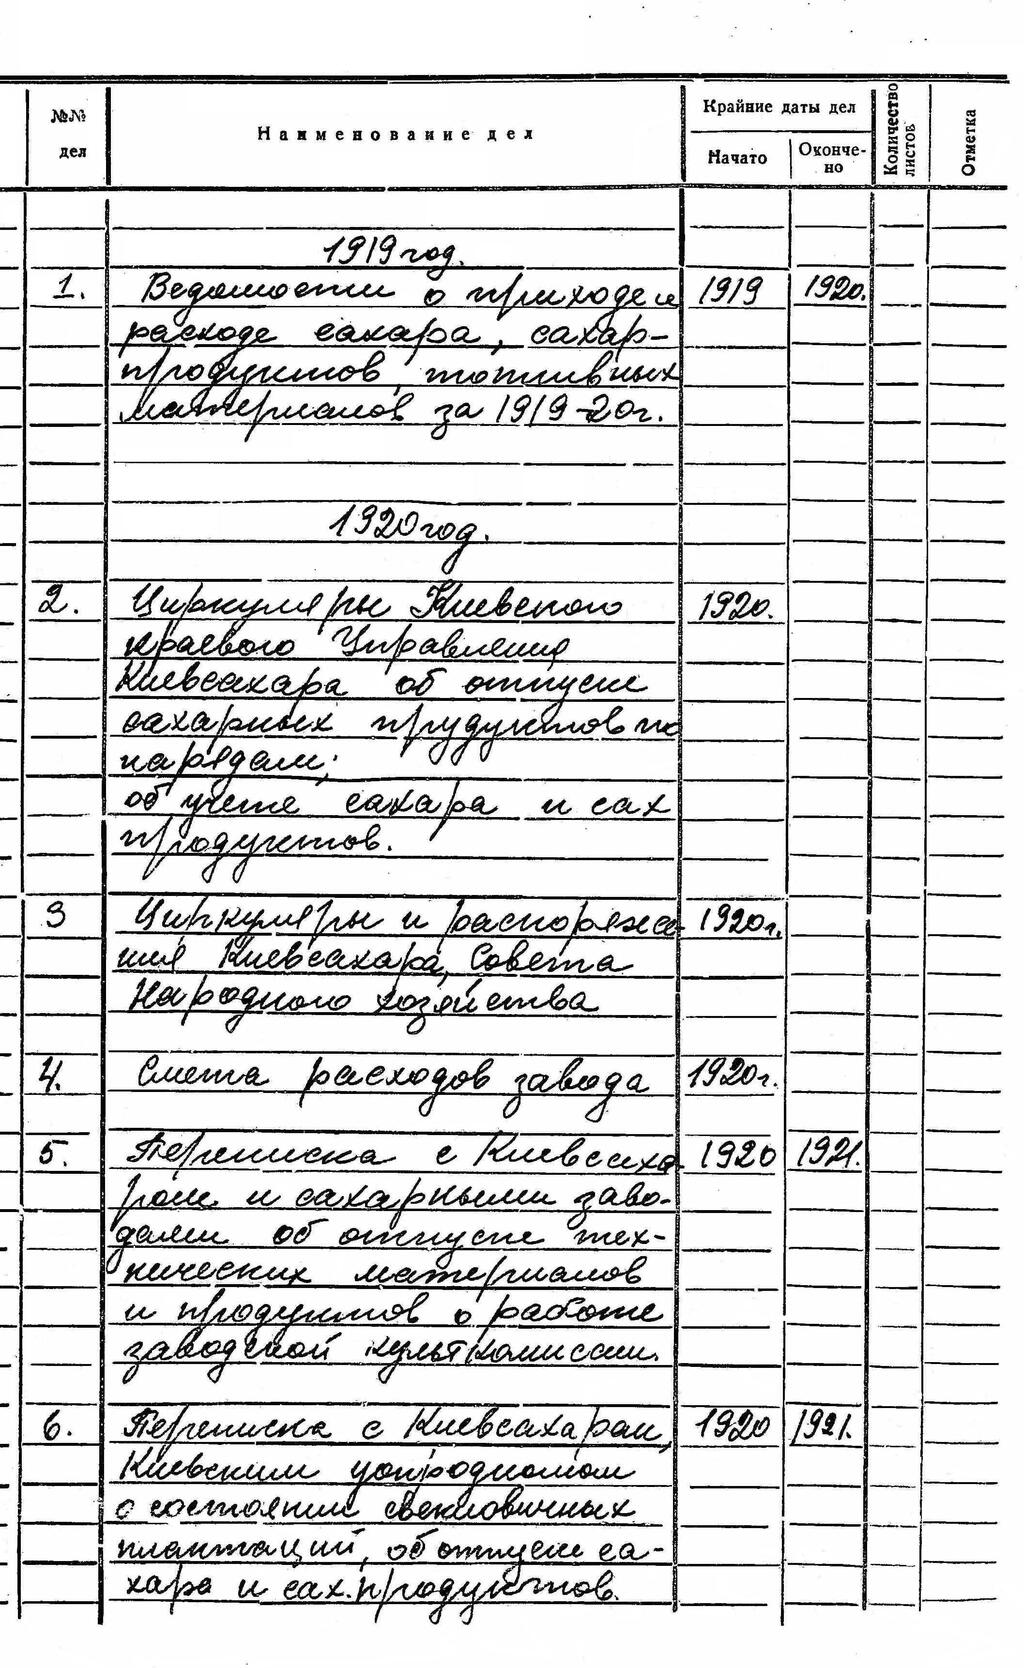 №№ дел
Наименование дел
Крайние даты дел
Начато
Окончено
Количество листов
Отметка
1919 год.
1. Ведомости о приходе и 1919 1920.
расходе сахара, сахар-
продуктов, топливных
материалов за 1919-20г.
1920 год.
2. Циркуляры Киевского 1920.
краевого Управления
Киевсахара об отпуске
сахарных прудуктов по
нарядам;
об учете сахара и сах
продуктов.
3 Циркуляры и распоряже- 1920г.
ния Киевсахара, Совета
Народного хозяйства
4. Смета расходов завода 1920г.
5. Переписка с Киевсаха- 1920 1921.
ром и сахарными заво-
дами об отпуске тех-
нических материалов
и продуктов о работе
заводской культкомиссии.
6. Переписка с Киевсахаром, 1920 1921.
Киевским
о состоянии свекловичных
плантаций, об отпуске са-
хара и сах.продуктов.